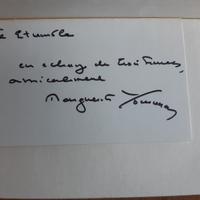 Etiemble
en échange de trois
amicalement
Marguerite Yourcenar